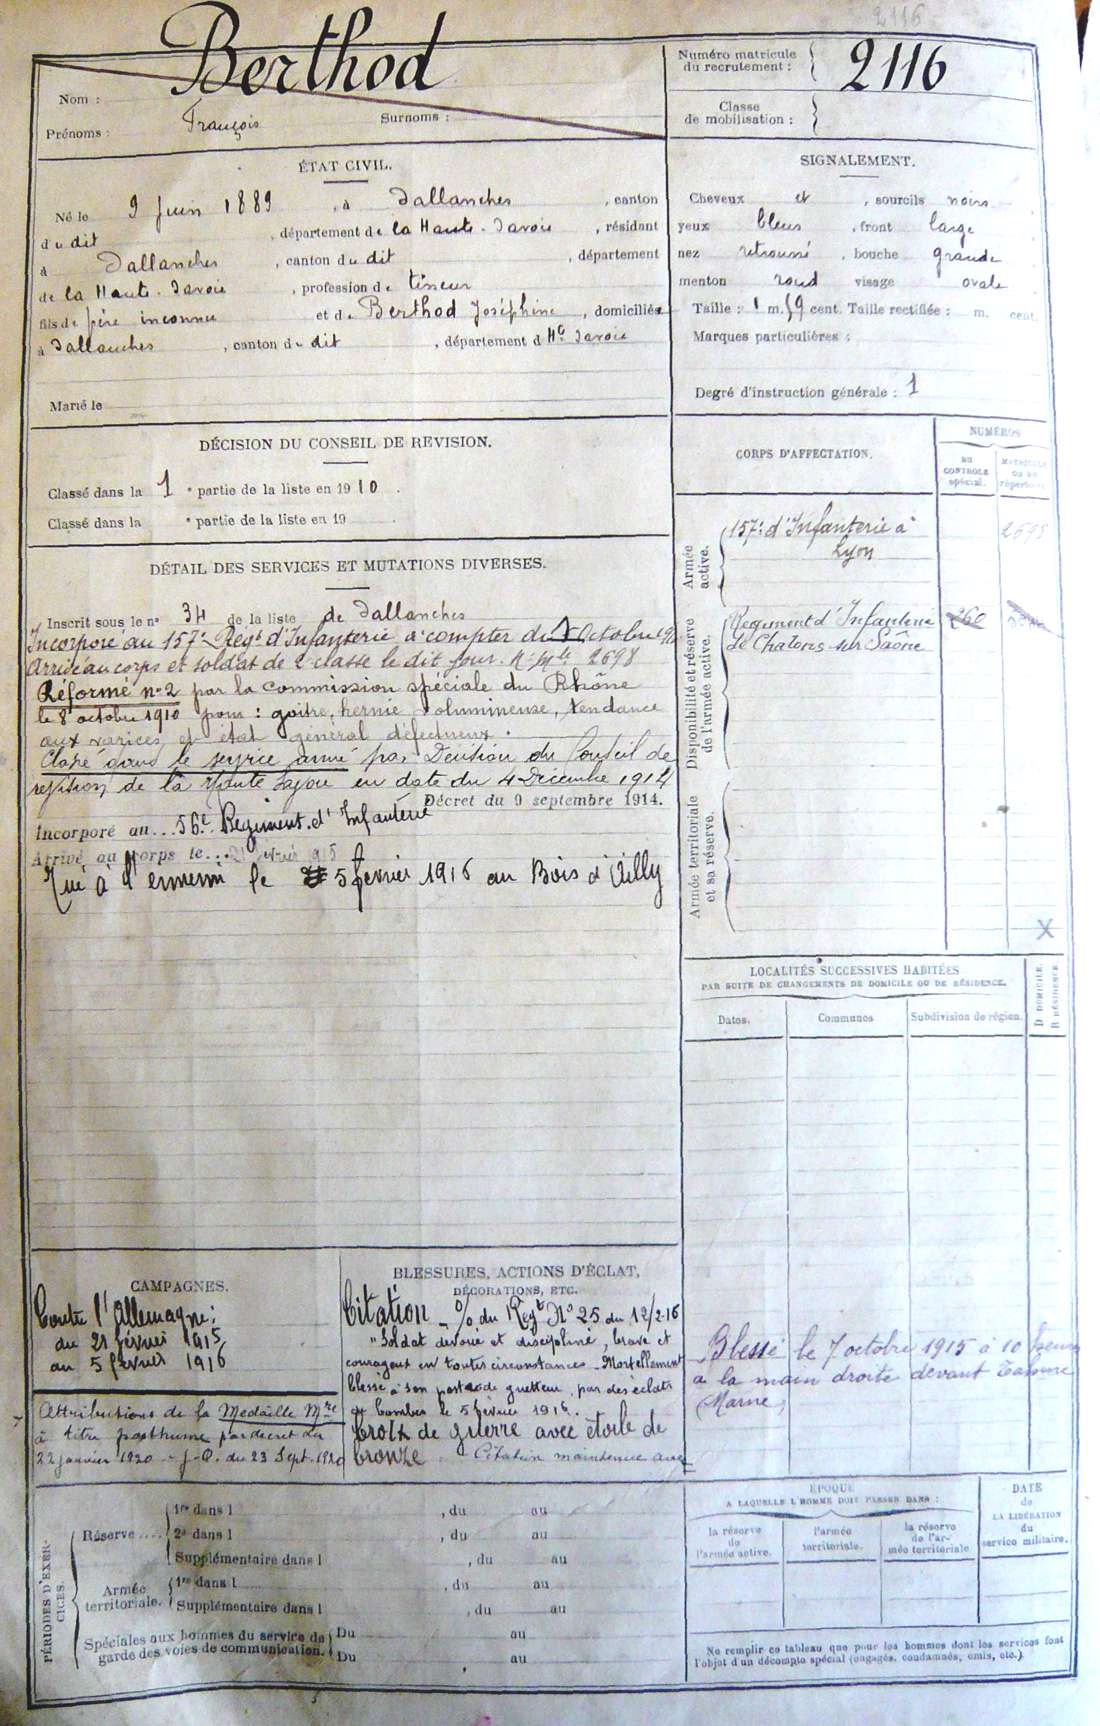 2116
Berthod
Nom :
Prénoms : François Surnoms :
Numéro matricule du recrutement : 2116
Classe de mobilisation :
ÉTAT CIVIL.
Né le 9 Juin 1889, à Sallanches, canton
du dit, département de la Haute-Savoie, résidant
à Sallanches, canton du dit, département
de la Haute-Savoie, profession de
fils de père inconnu et de Berthod Joséphine, domiciliée
à Sallanches, canton du dit, département d Hte Savoie
Marié le
SIGNALEMENT.
Cheveux et, sourcils noirs
yeux bleus, front large
nez retroussé, bouche grande
menton rond visage ovale
Taille : 1 m. 59 cent. Taille rectifiée : m. cent.
Marques particulières :
Degré d'instruction générale : 1
DÉCISION DU CONSEIL DE REVISION.
Classé dans la 1e partie de la liste en 1910.
Classé dans la e partie de la liste en 19
CORPS D'AFFECTATION.
NUMÉROS
AU CONTROLE spécial.
MATRICULE OU AU répertoire.
Armée active.
157e d'Infanterie à
Lyon
2698
Disponibilité et réserve de l'armée active.
Régiment d'Infanterie
de Chalons-sur-Saône
Armée territoriale et sa réserve.
X
DÉTAIL DES SERVICES ET MUTATIONS DIVERSES.
Inscrit sous le no 34 de la liste de Sallanches
Incorporé au 157e Régt d'Infanterie à compter du Octobre
Arrivé au corps et soldat de 2e classe le dit jour. No mle 2698
Réformé no 2 par la commission spéciale du Rhône
le 8 octobre 1910 pour : goitre, hernie volumineuse, tendance
aux varices et état général défectueux.
Classé dans le service armé par Décision du Conseil de
révision de la Haute Savoie en date du 4 Décembre 1914
Décret du 9 septembre 1914.
Incorporé au... 56e Régiment d'Infanterie
Arrivé au corps le... 21 février 1915
Tué à l'ennemi le 5 février 1916 au Bois d'Villy
LOCALITÉS SUCCESSIVES HABITÉES
PAR SUITE DE CHANGEMENTS DE DOMICILE OU DE RÉSIDENCE.
Dates.
Communes
Subdivision de région.
D DOMICILE.
R RÉSIDENCE.
CAMPAGNES.
Contre l'Allemagne :
du 21 février 1915
au 5 février 1916
Attributions de la Médaille Mre
à titre posthume par décret du
22 janvier 1920 - J.O. du 23 Sept. 1920
BLESSURES, ACTIONS D'ÉCLAT,
DÉCORATIONS, ETC.
Citation - O/ du Regt No 25 du 12/2-16
"Soldat dévoué et discipliné, brave et
courageux en toutes circonstances - Mortellement
blessé à son poste de guetteur, par des éclats
de bombes le 5 février 1916.
Croix de guerre avec étoile de
bronze Citation maintenue avec
Blessé le 7 octobre 1915 à 10 heures
à la main droite devant Tahure
(Marne)
PÉRIODES D'EXERCICES.
Réserve.... 1re dans l , du au
2e dans l , du au
Supplémentaire dans l , du au
Armée territoriale. 1re dans l , du au
Supplémentaire dans l , du au
Spéciales aux hommes du service de garde des voies de communication. Du au
Du au
ÉPOQUE
A LAQUELLE L'HOMME DOIT PASSER DANS :
la réserve de l'armée active.
l'armée territoriale.
la réserve de l'armée territoriale
DATE de LA LIBÉRATION du service militaire.
Ne remplir ce tableau que pour les hommes dont les services font
l'objet d'un décompte spécial (engagés, condamnés, omis, etc.).